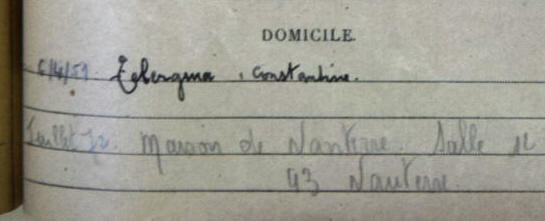 DOMICILE.
6/4/59. Telergma, Constantine.
Juillet 72. Maison de Nanterre. Salle
43 Nanterre.